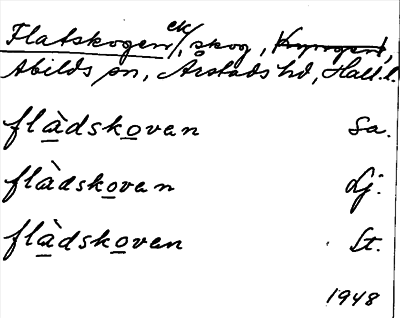 Flatskogen ek/, skog,
Abilds sn, Årstads hd, Hall. l.
flàdskovan Sa.
flàdskovan Lj.
flàdskovan St.
1948